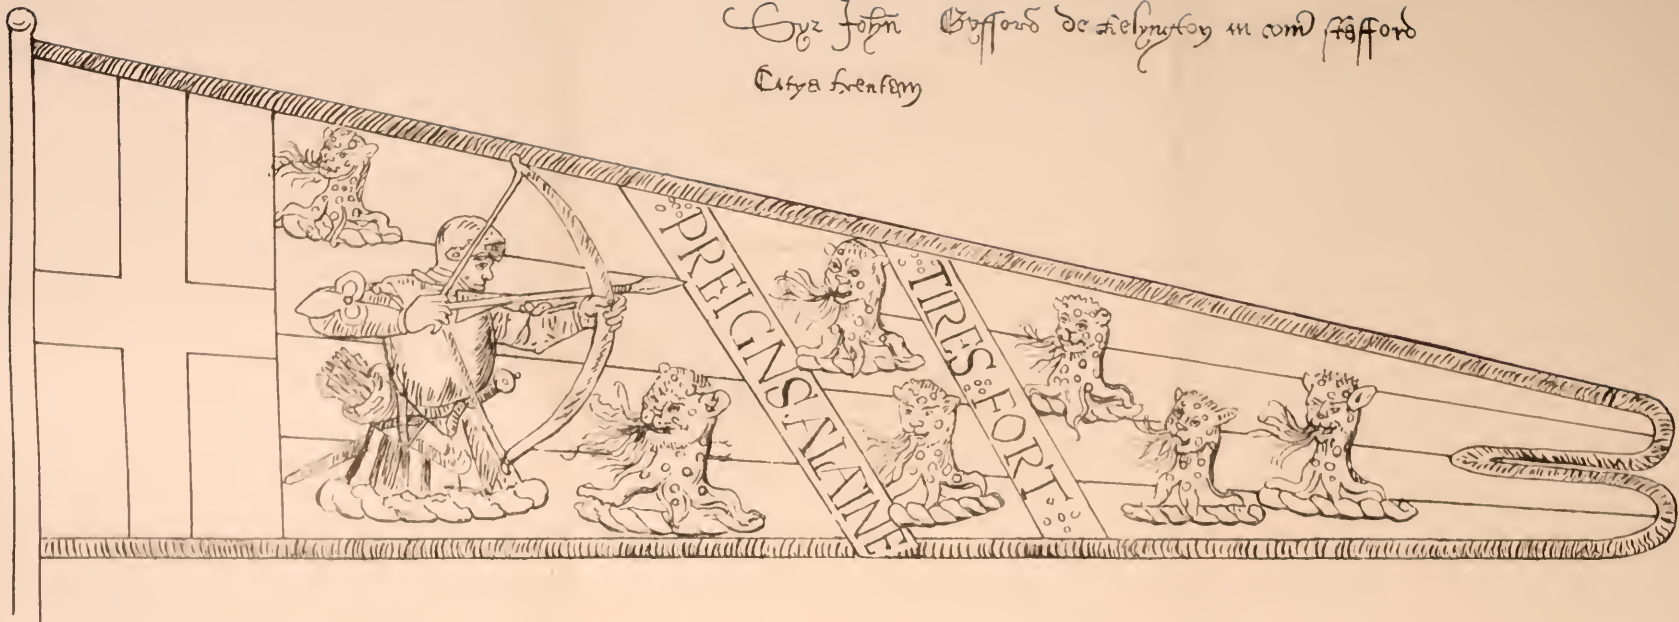 Syr John Gyfford de Chelyngton in com Stafford
Citra trentam
PREIGNSALAINE
TIRES FORT